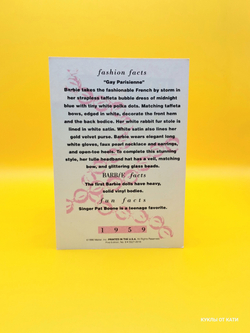 fashion facts
"Gay Parisienne"
Barbie takes the fashionable French by storm in
her strapless taffeta bubble dress of midnight
blue with tiny white polka dots. Matching taffeta
bows, edged in white, decorate the front hem
and the back bodice. Her white rabbit fur stole is
lined in white satin. White satin also lines her
gold velvet purse. Barbie wears elegant long
white gloves, faux pearl necklace and earrings,
and open-toe heels. To complete this stunning
style, her tulle headband hat has a veil, matching
bow, and glittering glass beads.
BARBIE facts
The first Barbie dolls have heavy,
solid vinyl bodies.
fun facts
Singer Pat Boone is a teenage favorite.
1959
PRINTED IN THE U.S.A.